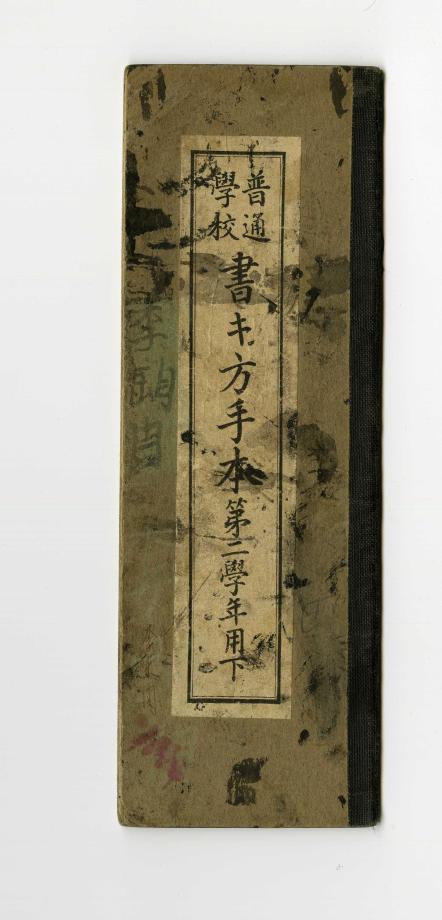 普通
學校
書キ方手本第二學年用下